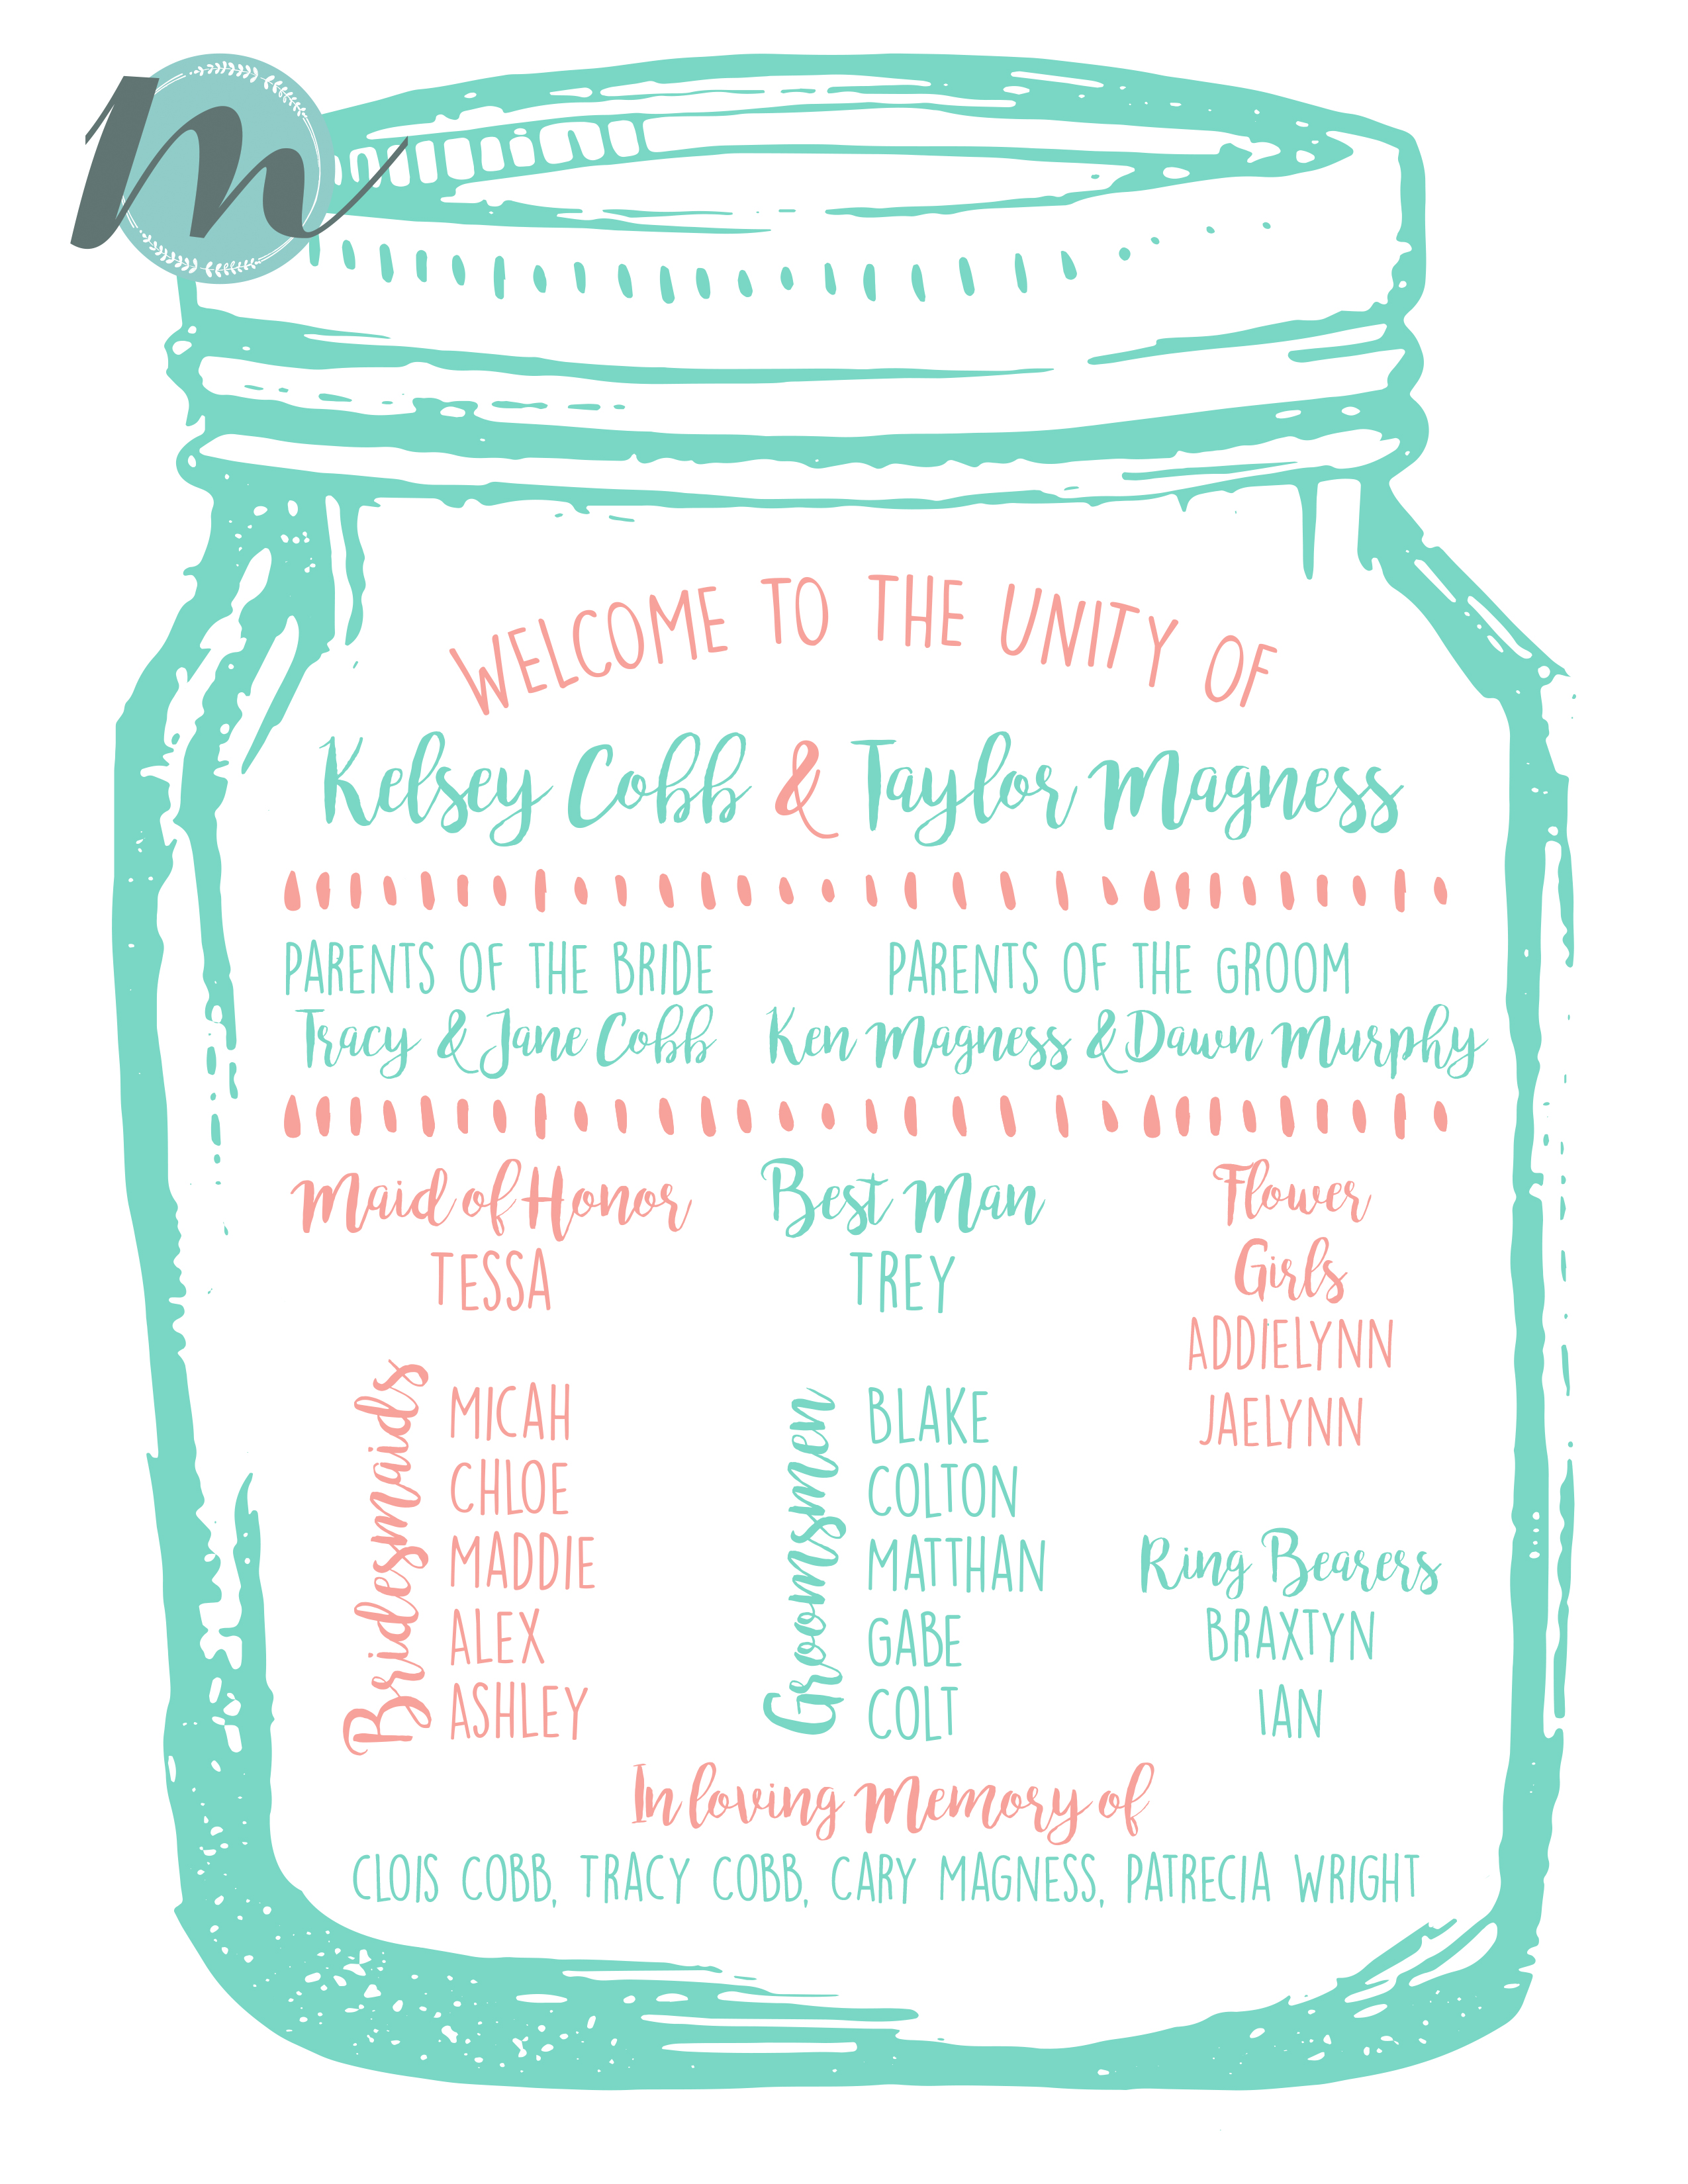 m
WELCOME TO THE UNITY OF
Kelsey Cobb & Taylor Magness
PARENTS OF THE BRIDE
Tracy & Jane Cobb
PARENTS OF THE GROOM
Ken Magness & Dawn Murphy
Maid of Honor
TESSA
Bridesmaids
MICAH
CHLOE
MADDIE
ALEX
ASHLEY
Best Man
TREY
Groomsmen
BLAKE
COLTON
MATTHAN
GABE
COLT
Flower
Girls
ADDIELYNN
JAELYNN
Ring Bearers
BRAXTYN
IAN
In loving Memory of
CLOIS COBB, TRACY COBB, CARY MAGNESS, PATRECIA WRIGHT